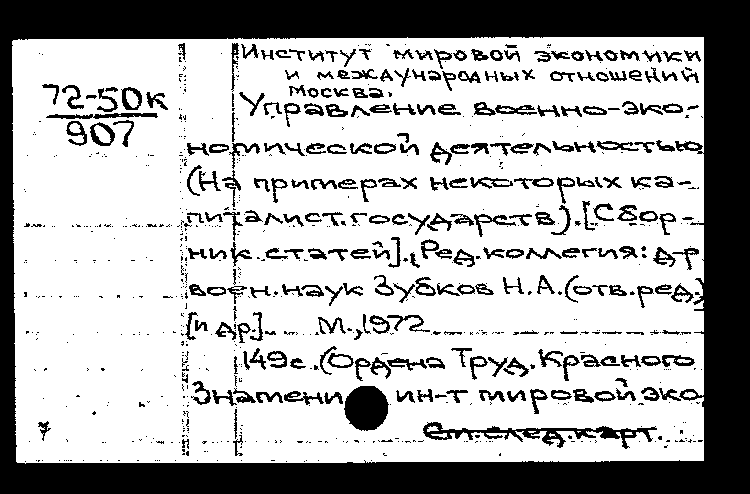 Институт мировой экономики
и международных отношений
Москва.
72-50к
907
Управление военно-эко-
номической деятельностью
(На примерах некоторых ка-
питалист. государств). [Сбор-
ник статей]. Ред. коллегия: д-р
воен. наук Зубков Н.А. (отв. ред.)
[и др.]. М., 1972
149с. (Ордена Труд. Красного
Знамени ин-т мировой эко
См. след. карт.